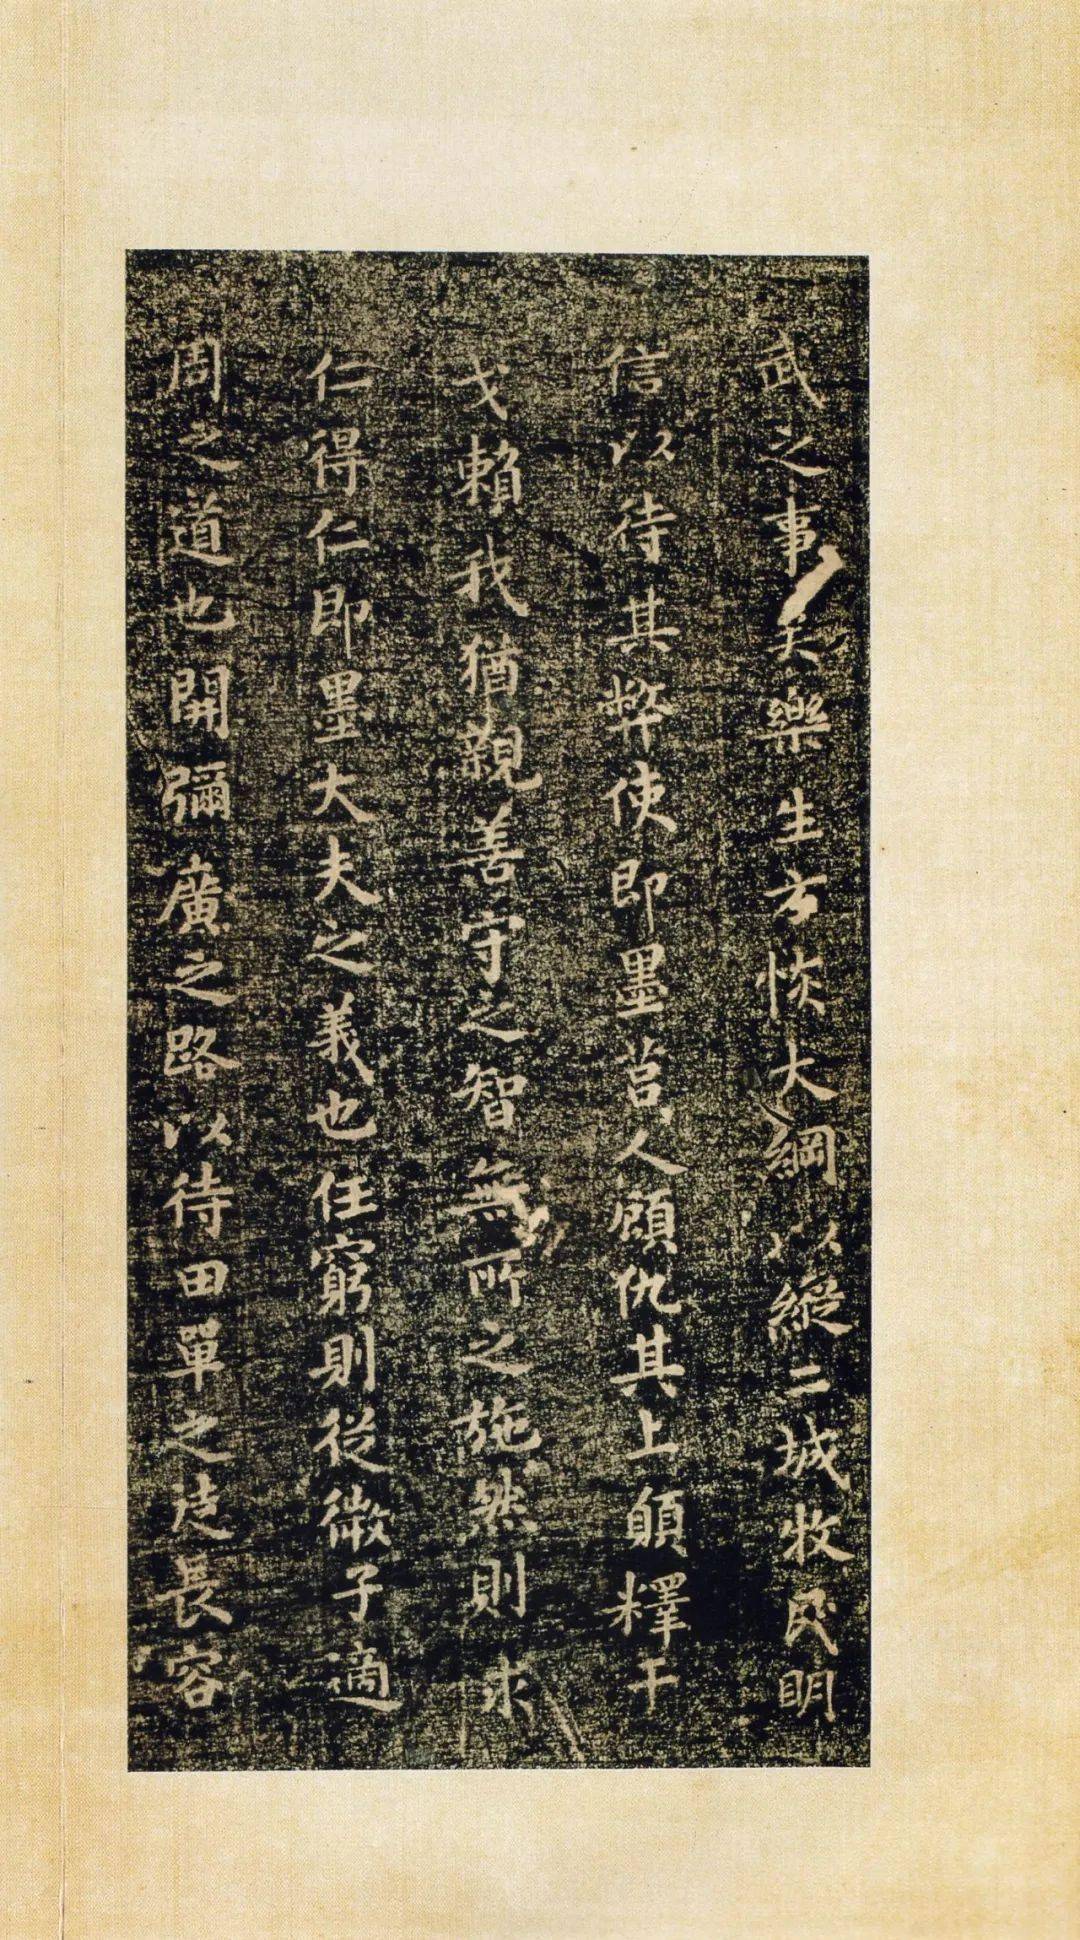 武之事矣樂生方恢大綱以縱二城牧民明
信以待其弊使即墨莒人顧仇其上願釋干
戈賴我猶親善守之智無所之施然則求
仁得仁即墨大夫之義也任窮則從微子適
周之道也開彌廣之路以待田單之徒長容